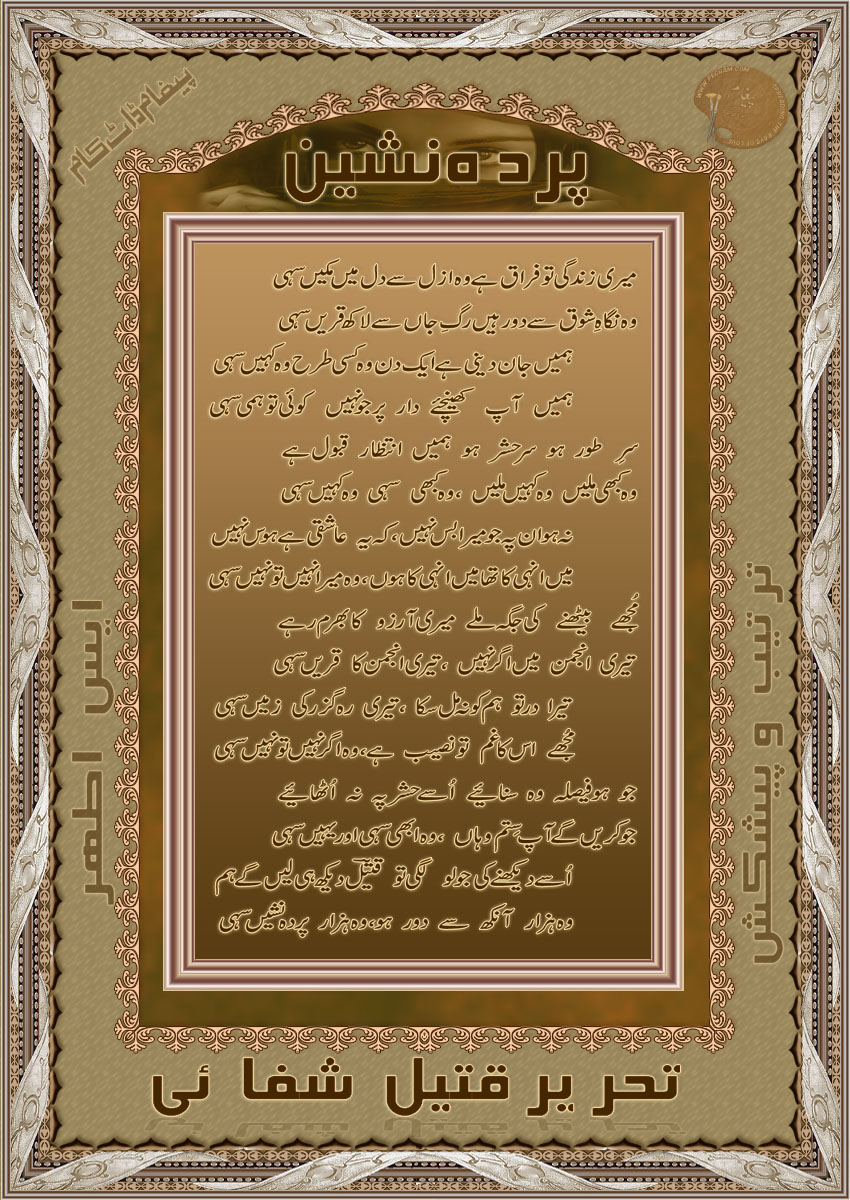 پیغام ڈاٹ کام
پردہ نشین
میری زندگی تو فراق ہے وہ ازل سے دل میں مکیں سہی
وہ نگاہِ شوق سے دور ہیں رگِ جاں سے لاکھ قریں سہی
ہمیں جان دینی ہے ایک دن وہ کسی طرح وہ کہیں سہی
ہمیں آپ کھینچئے دار پر جو نہیں کوئی تو ہمی سہی
سرِ طور ہو سرحشر ہو ہمیں انتظار قبول ہے
وہ کبھی ملیں وہ کہیں ملیں ،وہ کبھی سہی وہ کہیں سہی
نہ ہو ان پہ جو میرا بس نہیں، کہ یہ عاشقی ہے ہوس نہیں
میں انہی کا تھا میں انہی کا ہوں، وہ میرا نہیں تو نہیں سہی
مُجھے بیٹھنے کی جگہ ملے میری آرزو کا بھرم رہے
تیری انجمن میں اگر نہیں ،تیری انجمن کا قریں سہی
تیرا در تو ہم کو نہ مل سکا ،تیری رہ گزر کی زمیں سہی
مُجھے اس کا غم تو نصیب ہے،وہ اگر نہیں تو نہیں سہی
جو ہو فیصلہ وہ سنائیے اُسے حشر پہ نہ اُٹھائیے
جو کریں گے آپ ستم وہاں ،وہ ابھی سہی اور یہیں سہی
اُسے دیکھنے کی جو لو لگی تو قتیلؔ دیکھ ہی لیں گے ہم
وہ ہزار آنکھ سے دور ہو،وہ ہزار پردہ نشیں سہی
ترتیب و پیشکش
ایس اطہر
تحریر قتیل شفائی